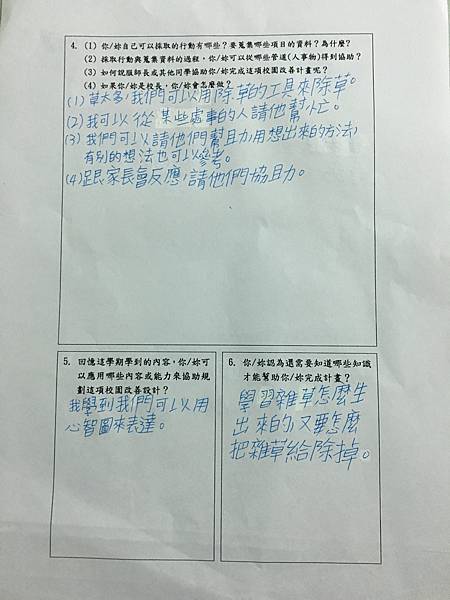 4. (1) 你/妳自己可以採取的行動有哪些？要蒐集哪些項目的資料？為什麼？
(2) 採取行動與蒐集資料的過程，你/妳可以從哪些管道(人事物)得到協助？
(3) 如何說服師長或其他同學協助你/妳完成這項校園改善計畫呢？
(4) 如果你/妳是校長，你/妳會怎麼做？
(1) 草太多，我們可以用除草的工具來除草。
(2) 我可以從某些處事的人請他幫忙。
(3) 我們可以請他們幫助，用想出來的方法，
有別的想法也可以參考。
(4) 跟家長會反應，請他們協助。
5. 回憶這學期學到的內容，你/妳可
以應用哪些內容或能力來協助規
劃這項校園改善設計？
我學到我們可以用
心智圖來表達。
6. 你/妳認為還需要知道哪些知識
才能幫助你/妳完成計畫？
學習雜草怎麼生
出來的，又要怎麼
把雜草給除掉。